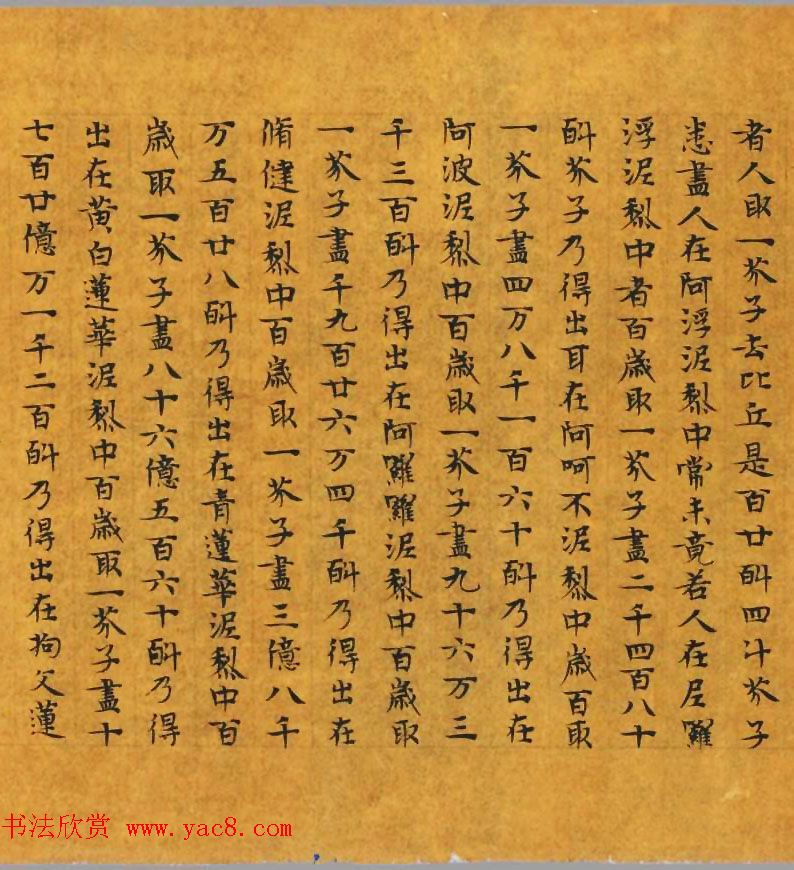 者人取一芥子去比丘是百廿㪷四斗芥子
悉盡人在阿浮泥犁中常未竟若人在尼羅
浮泥犁中者百歲取一芥子盡二千四百八十
㪷芥子乃得出耳在阿呵不泥犁中歲百取
一芥子盡四万八千一百六十㪷乃得出在
阿波泥犁中百歲取一芥子盡九十六万三
千三百㪷乃得出在阿羅羅泥犁中百歲取
一芥子盡千九百廿六万四千㪷乃得出在
脩健泥犁中百歲取一芥子盡三億八千
万五百廿八㪷乃得出在青蓮華泥犁中百
歲取一芥子盡八十六億五百六十㪷乃得
出在黃白蓮華泥犁中百歲取一芥子盡十
七百廿億万一千二百㪷乃得出在拘文蓮
书法欣赏 www.yac8.com